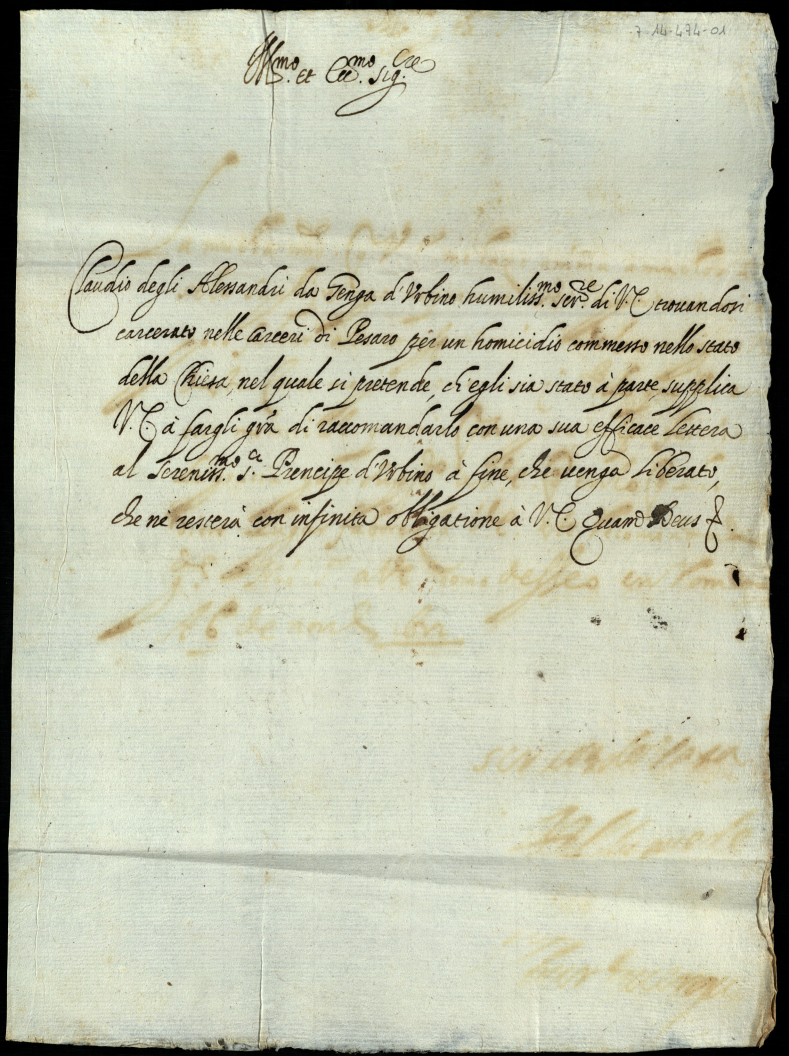 7-14-474-01
Ill.mo et Ecc.mo Sig.re
Claudio degli Alessandri da Genga d'Urbino humiliss.mo ser.re di V.E. trouandosi
carcerato nelle carceri di Pesaro per un homicidio commesso nello stato
della Chiesa, nel quale si pretende, ch'egli sia stato à parte, supplica
V.E. à fargli gr̃a di raccomandarlo con una sua efficace lettera
al Sereniss.mo s.r Prencipe d'Urbino à fine, che uenga liberato,
che ne resterà con infinita obligatione à V.E. Quam Deus